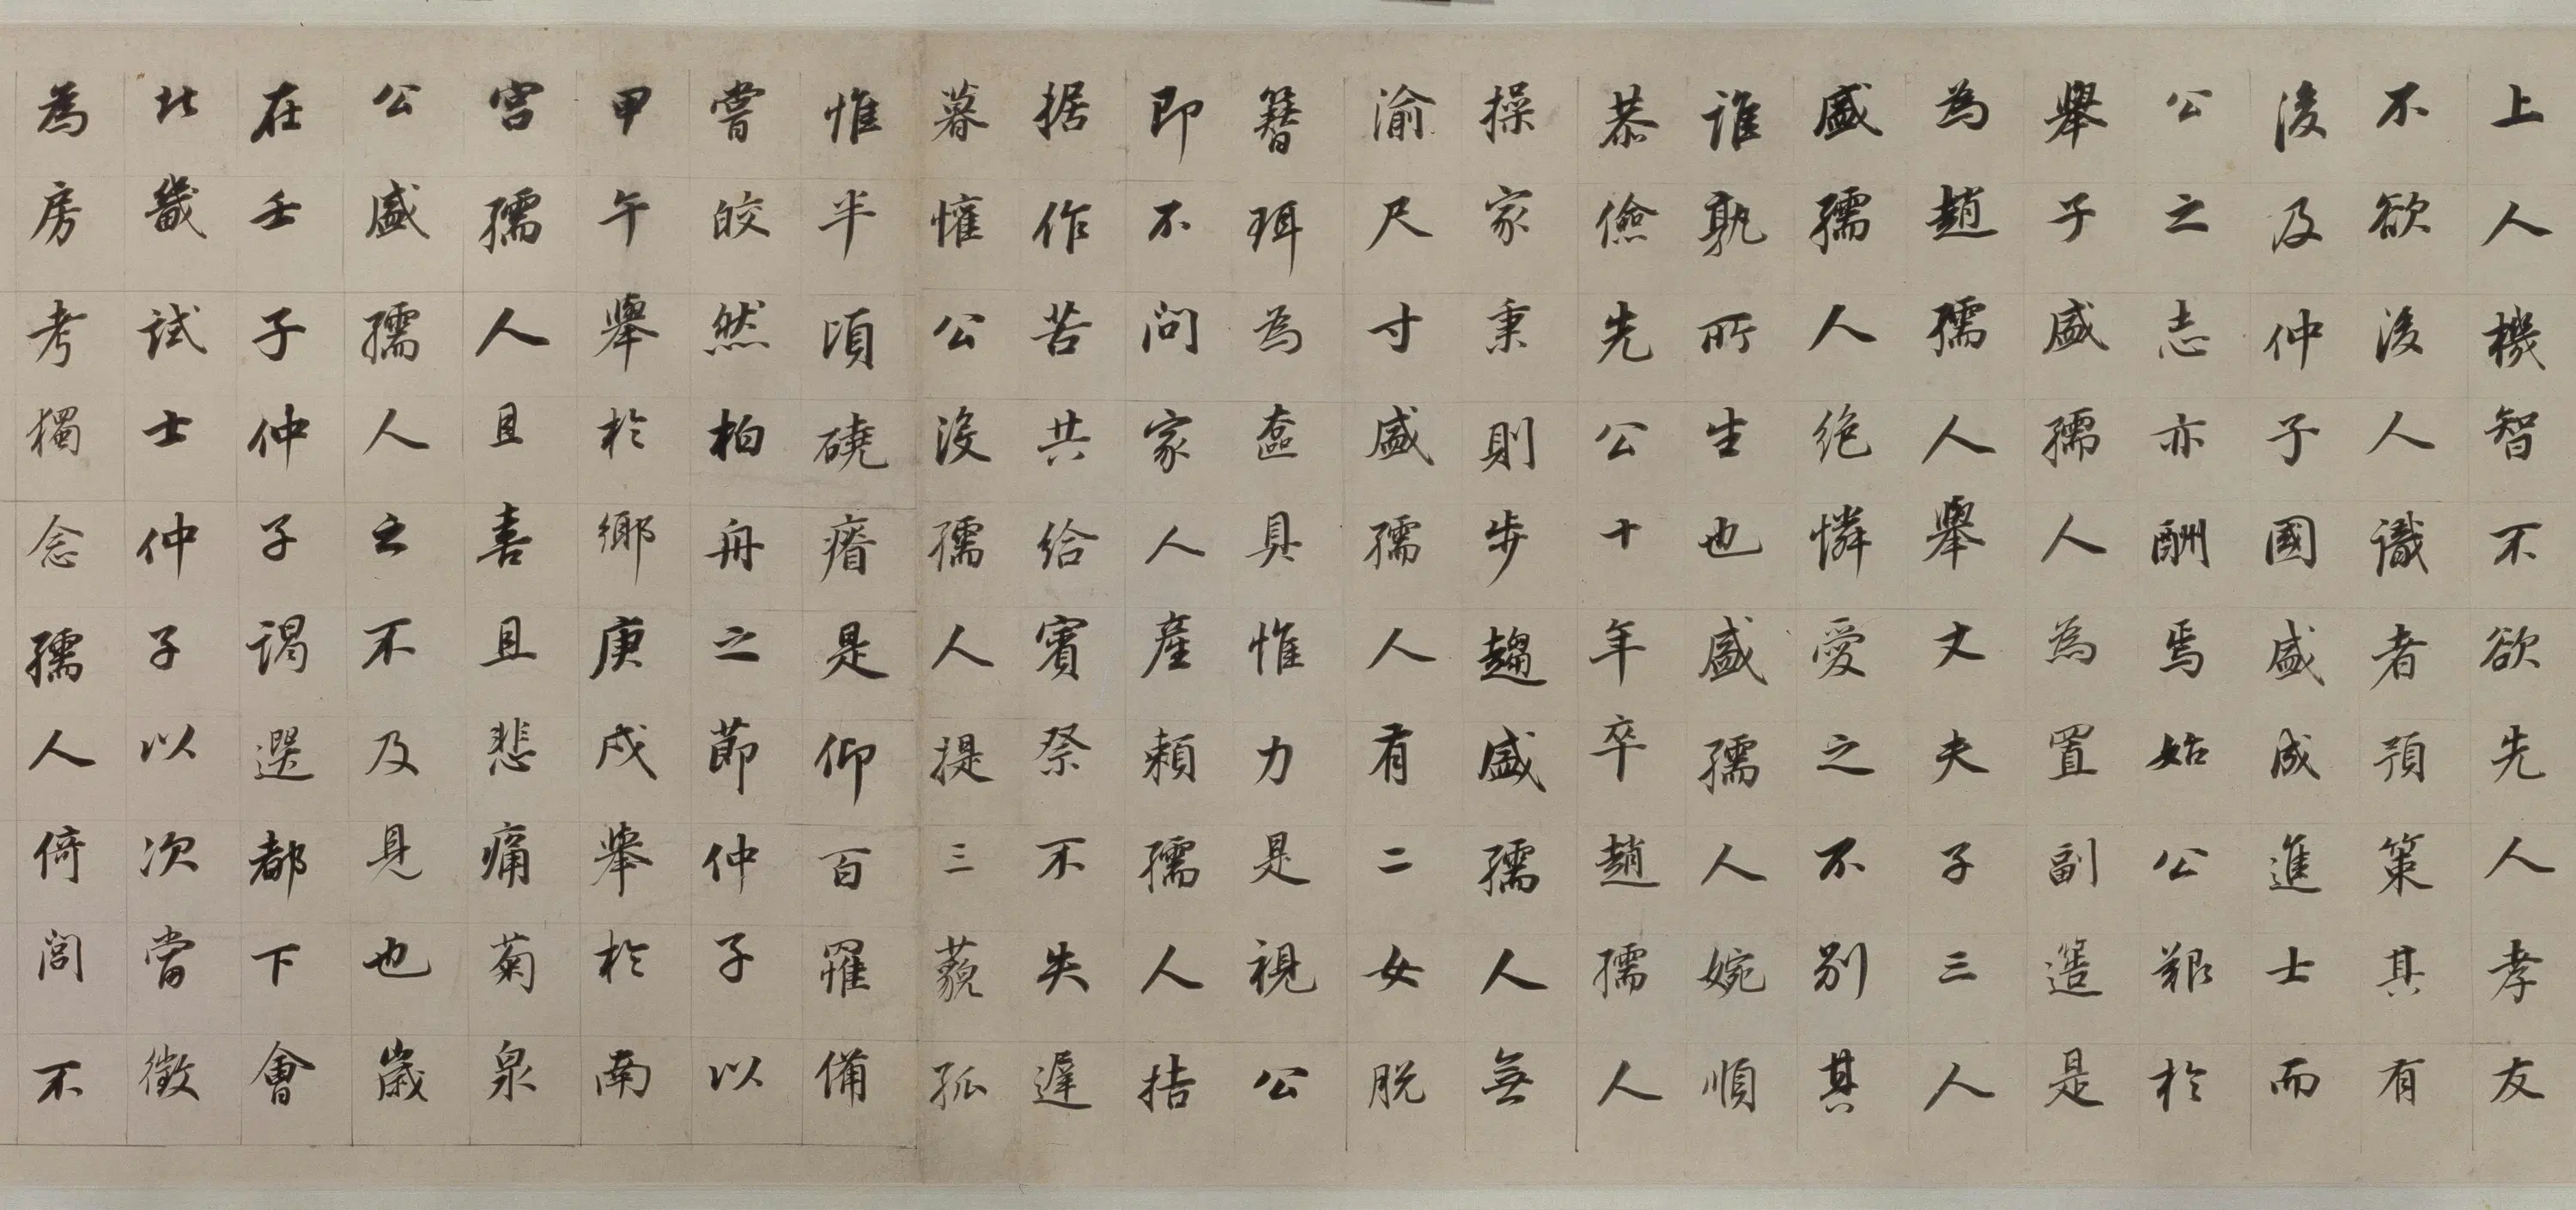 上人機智不欲先人孝友
不欲後人識者預策其有
後及仲子國盛成進士而
公之志亦酬焉始公艱於
舉子盛孺人為置副簉是
為趙孺人舉丈夫子三人
盛孺人絶憐愛之不別其
誰孰所生也盛孺人婉順
恭儉先公十年卒趙孺人
操家秉則步趨盛孺人無
渝尺寸盛孺人有二女脱
簪珥為奩具惟力是視公
即不問家人産賴孺人拮
据作苦共給賓祭不失遲
暮惟公没孺人提三藐孤
惟半頃磽瘠是仰百罹備
嘗皎然柏舟之節仲子以
甲午舉於鄉庚戌舉於南
宮孺人且喜且悲痛菊泉
公盛孺人之不及見也歲
在壬子仲子謁選都下會
北畿試士仲子以次當徵
為房考獨念孺人倚閭不